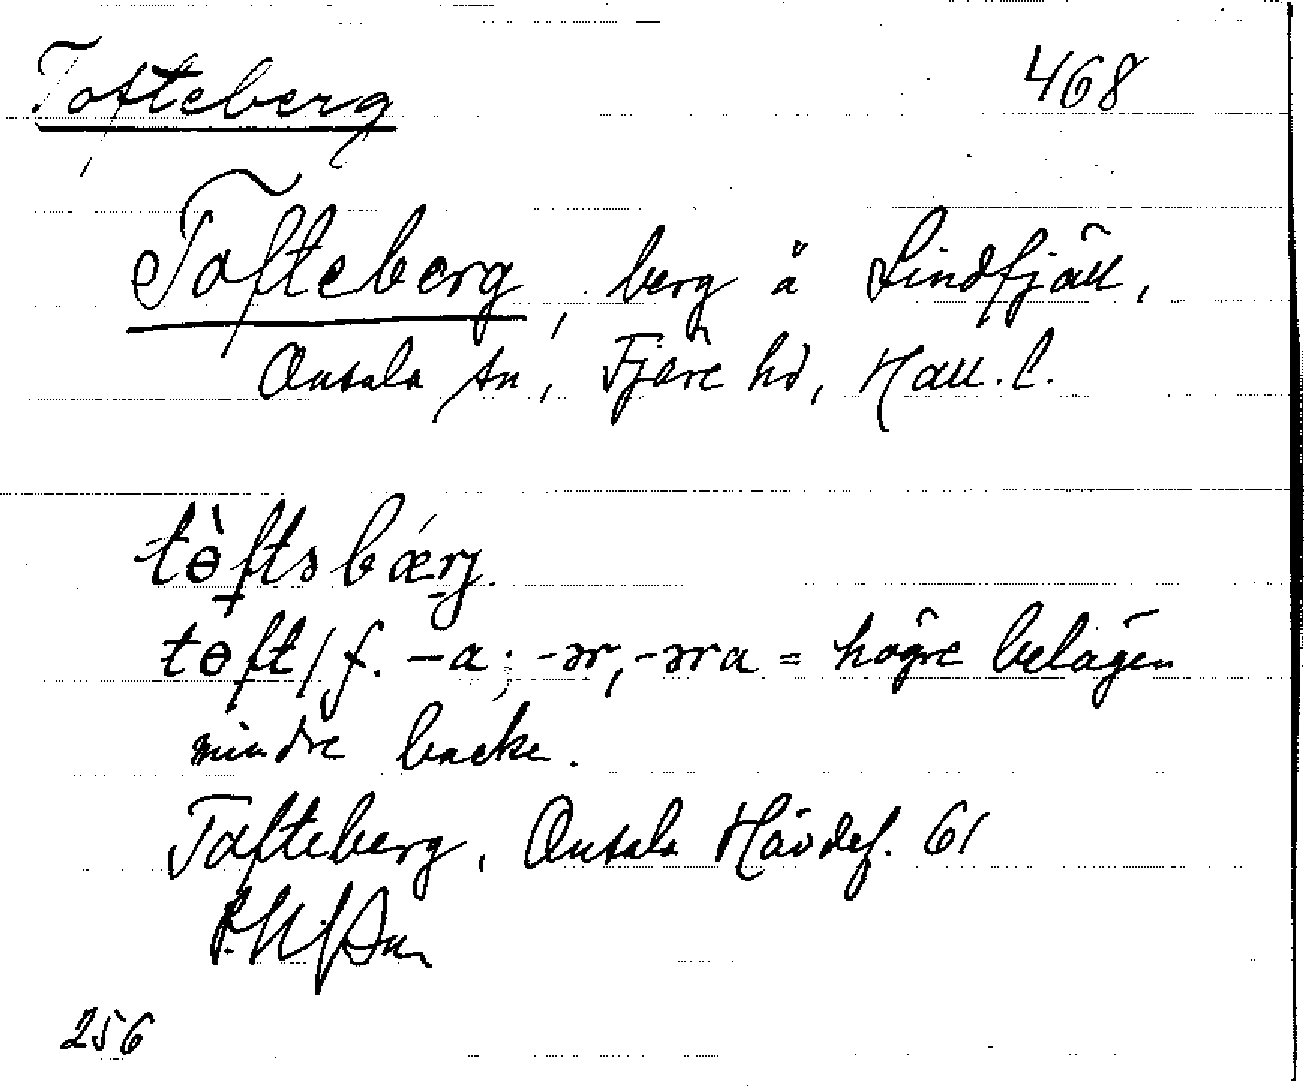 Tofteberg 468
Tofteberg, berg å Lindfjäll,
Onsala sn, Fjäre hd, Hall. l.
tɵ̀ftsbǽrj.
tɵft/f. -a; -ər, -əra = högre belägen
mindre backe.
Tofteberg, Onsala Hävdef. 61
256